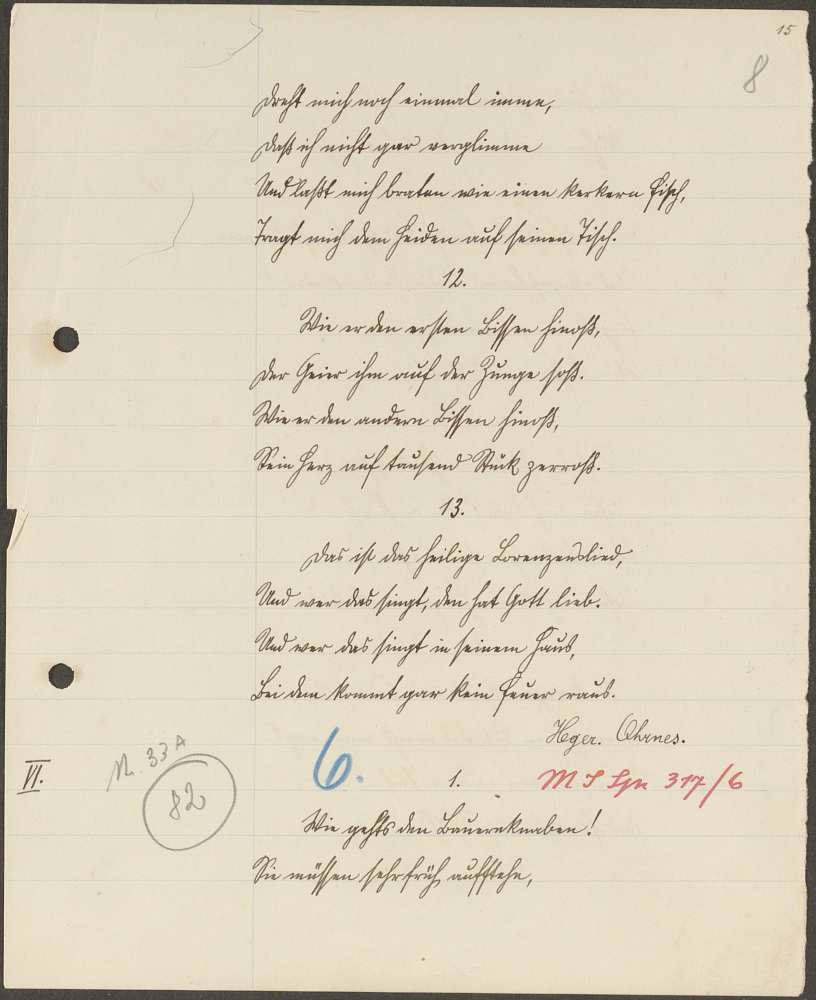 15
8
Dreht mich noch einmal imme,
Daß ich nicht gar verglimme
Und laßt mich braten wie einen kerkern Fisch,
Tragt mich dem Heiden auf seinen Tisch.
12.
Wie er den ersten Bissen hinaß,
Der Geier ihm auf der Zunge saß.
Wie er den andern Bissen hinaß,
Sein Herz auf tausend Stück zerraß.
13.
Das ist das heilige Lorenzenslied,
Und wer das singt, den hat Gott lieb.
Und wer das singt in seinem Haus,
Bei dem kommt gar kein Feuer raus.
Hger. Ohrnes.
VI.
N. 33 A
82
6.
1.
317/6
Wie gehts den Bauernknaben!
Sie müssen sehr früh aufstehn,